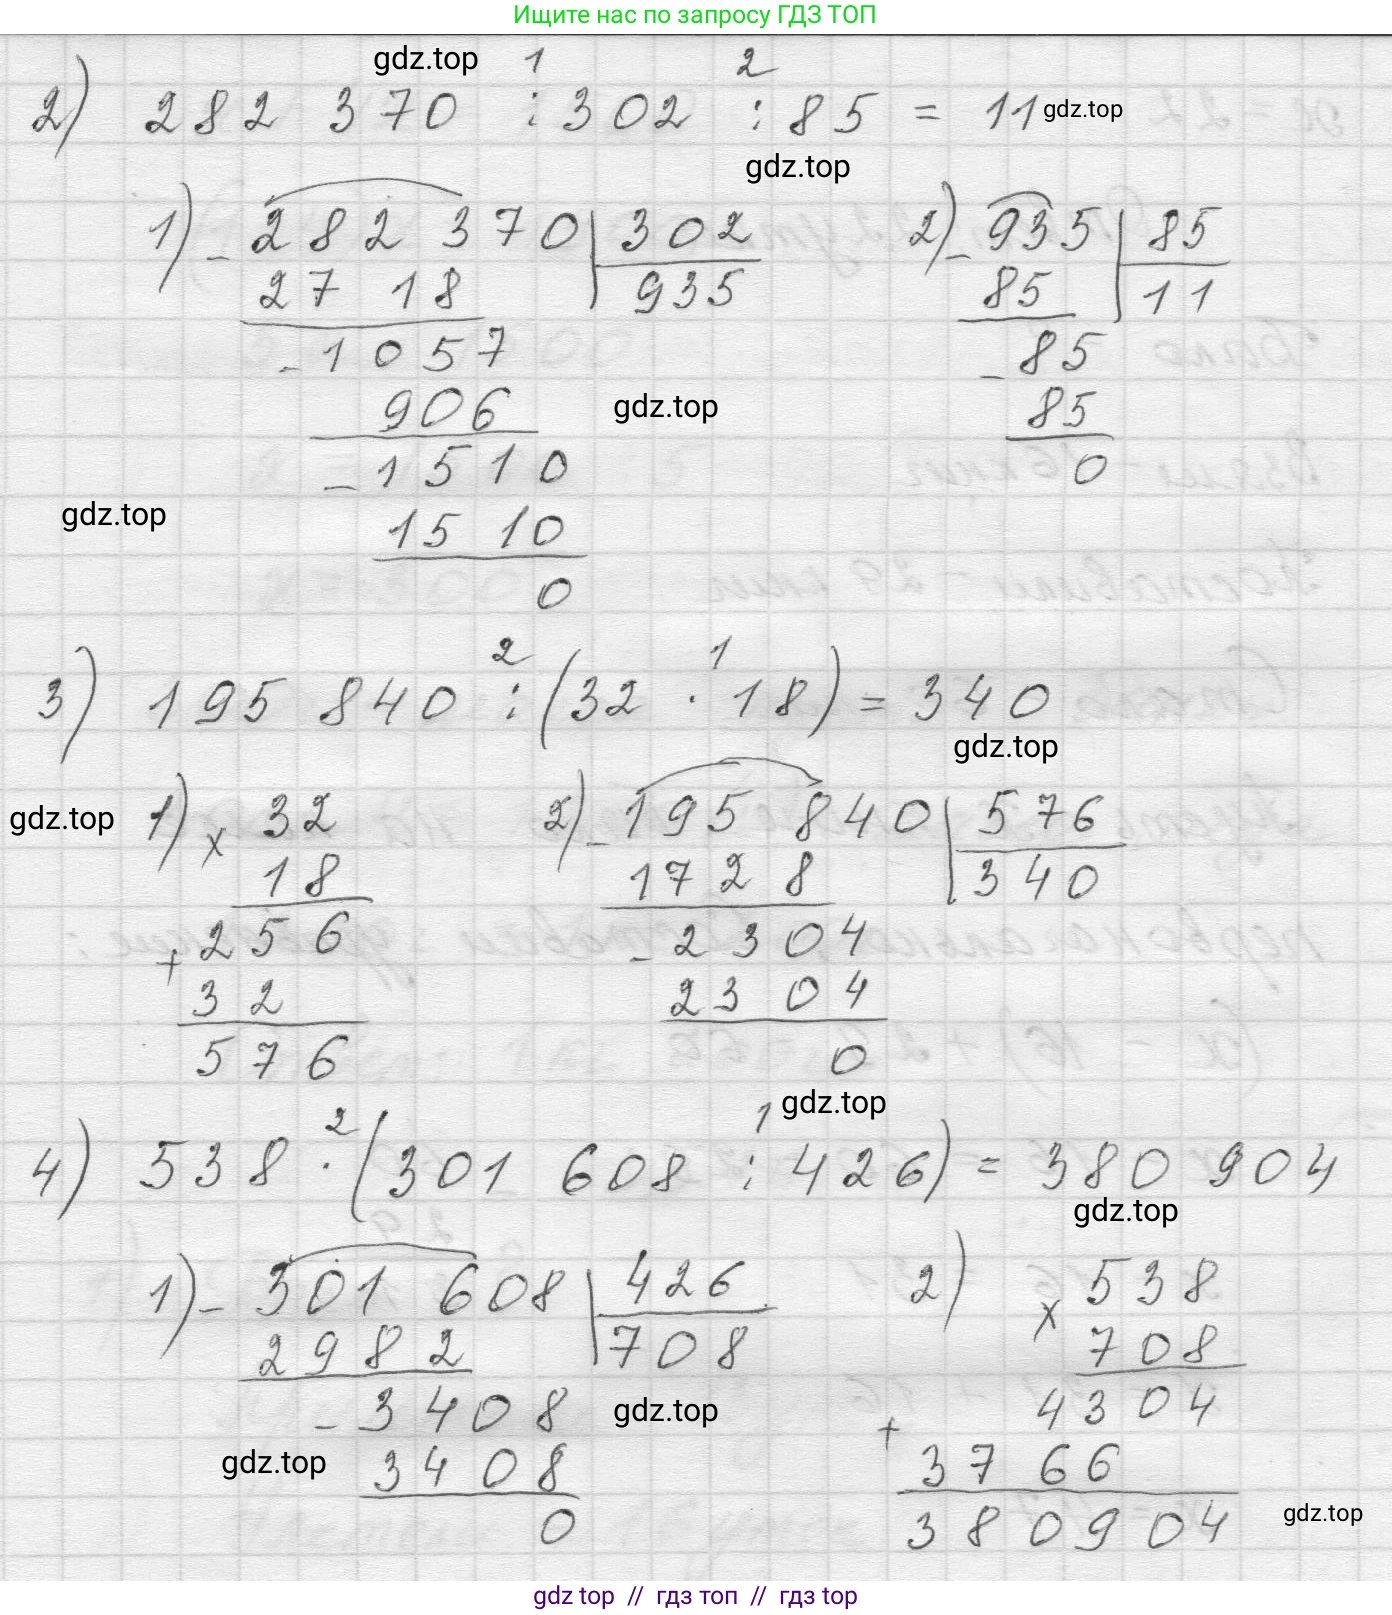 Ищите нас по запросу ГДЗ ТОП
gdz.top 1 2
2) 282 370 : 302 : 85 = 11 gdz.top
gdz.top
1) - 282 370 | 302 2) - 935 | 85
27 18 935 85 11
- 1057 - 85
906 gdz.top 85
- 1510 0
gdz.top
15 10
0
2 1
3) 195 840 : (32 · 18) = 340
gdz.top
gdz.top 1) x 32 2) - 195 840 | 576
18 1728 340
+ 256 - 2304
32 2304
576 0
2 1 gdz.top
4) 538 · (301 608 : 426) = 380 904
gdz.top
1) - 301 608 | 426 2) x 538
2982 708 708
- 3408 gdz.top 4304
gdz.top 3408 + 3766
0 380904 gdz.top
gdz top // гдз топ // гдз top